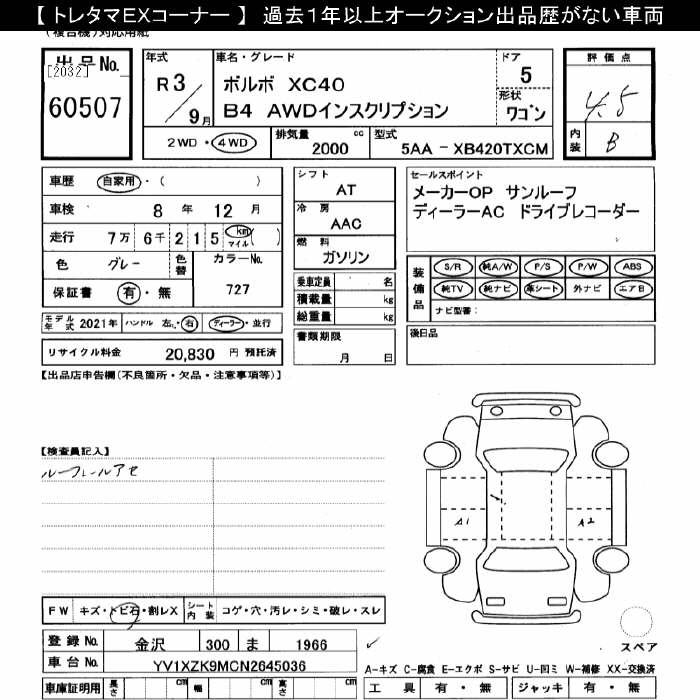 【 トレタマEXコーナー 】 過去１年以上オークション出品歴がない車両
(複合機)対応用紙
出品No. [2032] 60507
年式 R3/9月
車名・グレード
ボルボ XC40
B4 AWDインスクリプション
ドア 5
形状 ワゴン
評価点 4.5
内装 B
2WD・4WD
排気量 2000 cc
型式 5AA - XB420TXCM
車歴 自家用・( )
車検 8 年 12 月
走行 7万 6千 2 1 5 km マイル ( )
色 グレー 色替 カラーNo. 727
保証書 有・無
モデル年式 2021年 ハンドル 左・右 ディーラー・並行
リサイクル料金 20,830 円 預託済
シフト AT
冷房 AAC
燃料 ガソリン
乗車定員 名
積載量 kg
総重量 kg
書類期限
月 日
セールスポイント
メーカーOP サンルーフ
ディーラーAC ドライブレコーダー
装備品 S/R 純A/W P/S P/W ABS
純TV 純ナビ 革シート 外ナビ エアB
ナビ型番：
後日品
【出品店申告欄(不良箇所・欠品・注意事項等)】
【検査員記入】
ルーフレールアセ
A1 A2
FW キズ・トビ石・割レX シート内装 コゲ・穴・汚レ・シミ・破レ・スレ
登録No. 金沢 300 ま 1966
車台No. YV1XZK9MCN2645036
スペア
A-キズ C-腐食 E-エクボ S-サビ U-凹ミ W-補修 XX-交換済
車庫証明用 長さ cm 幅 cm 高さ cm
工具 有・無 ジャッキ 有・無